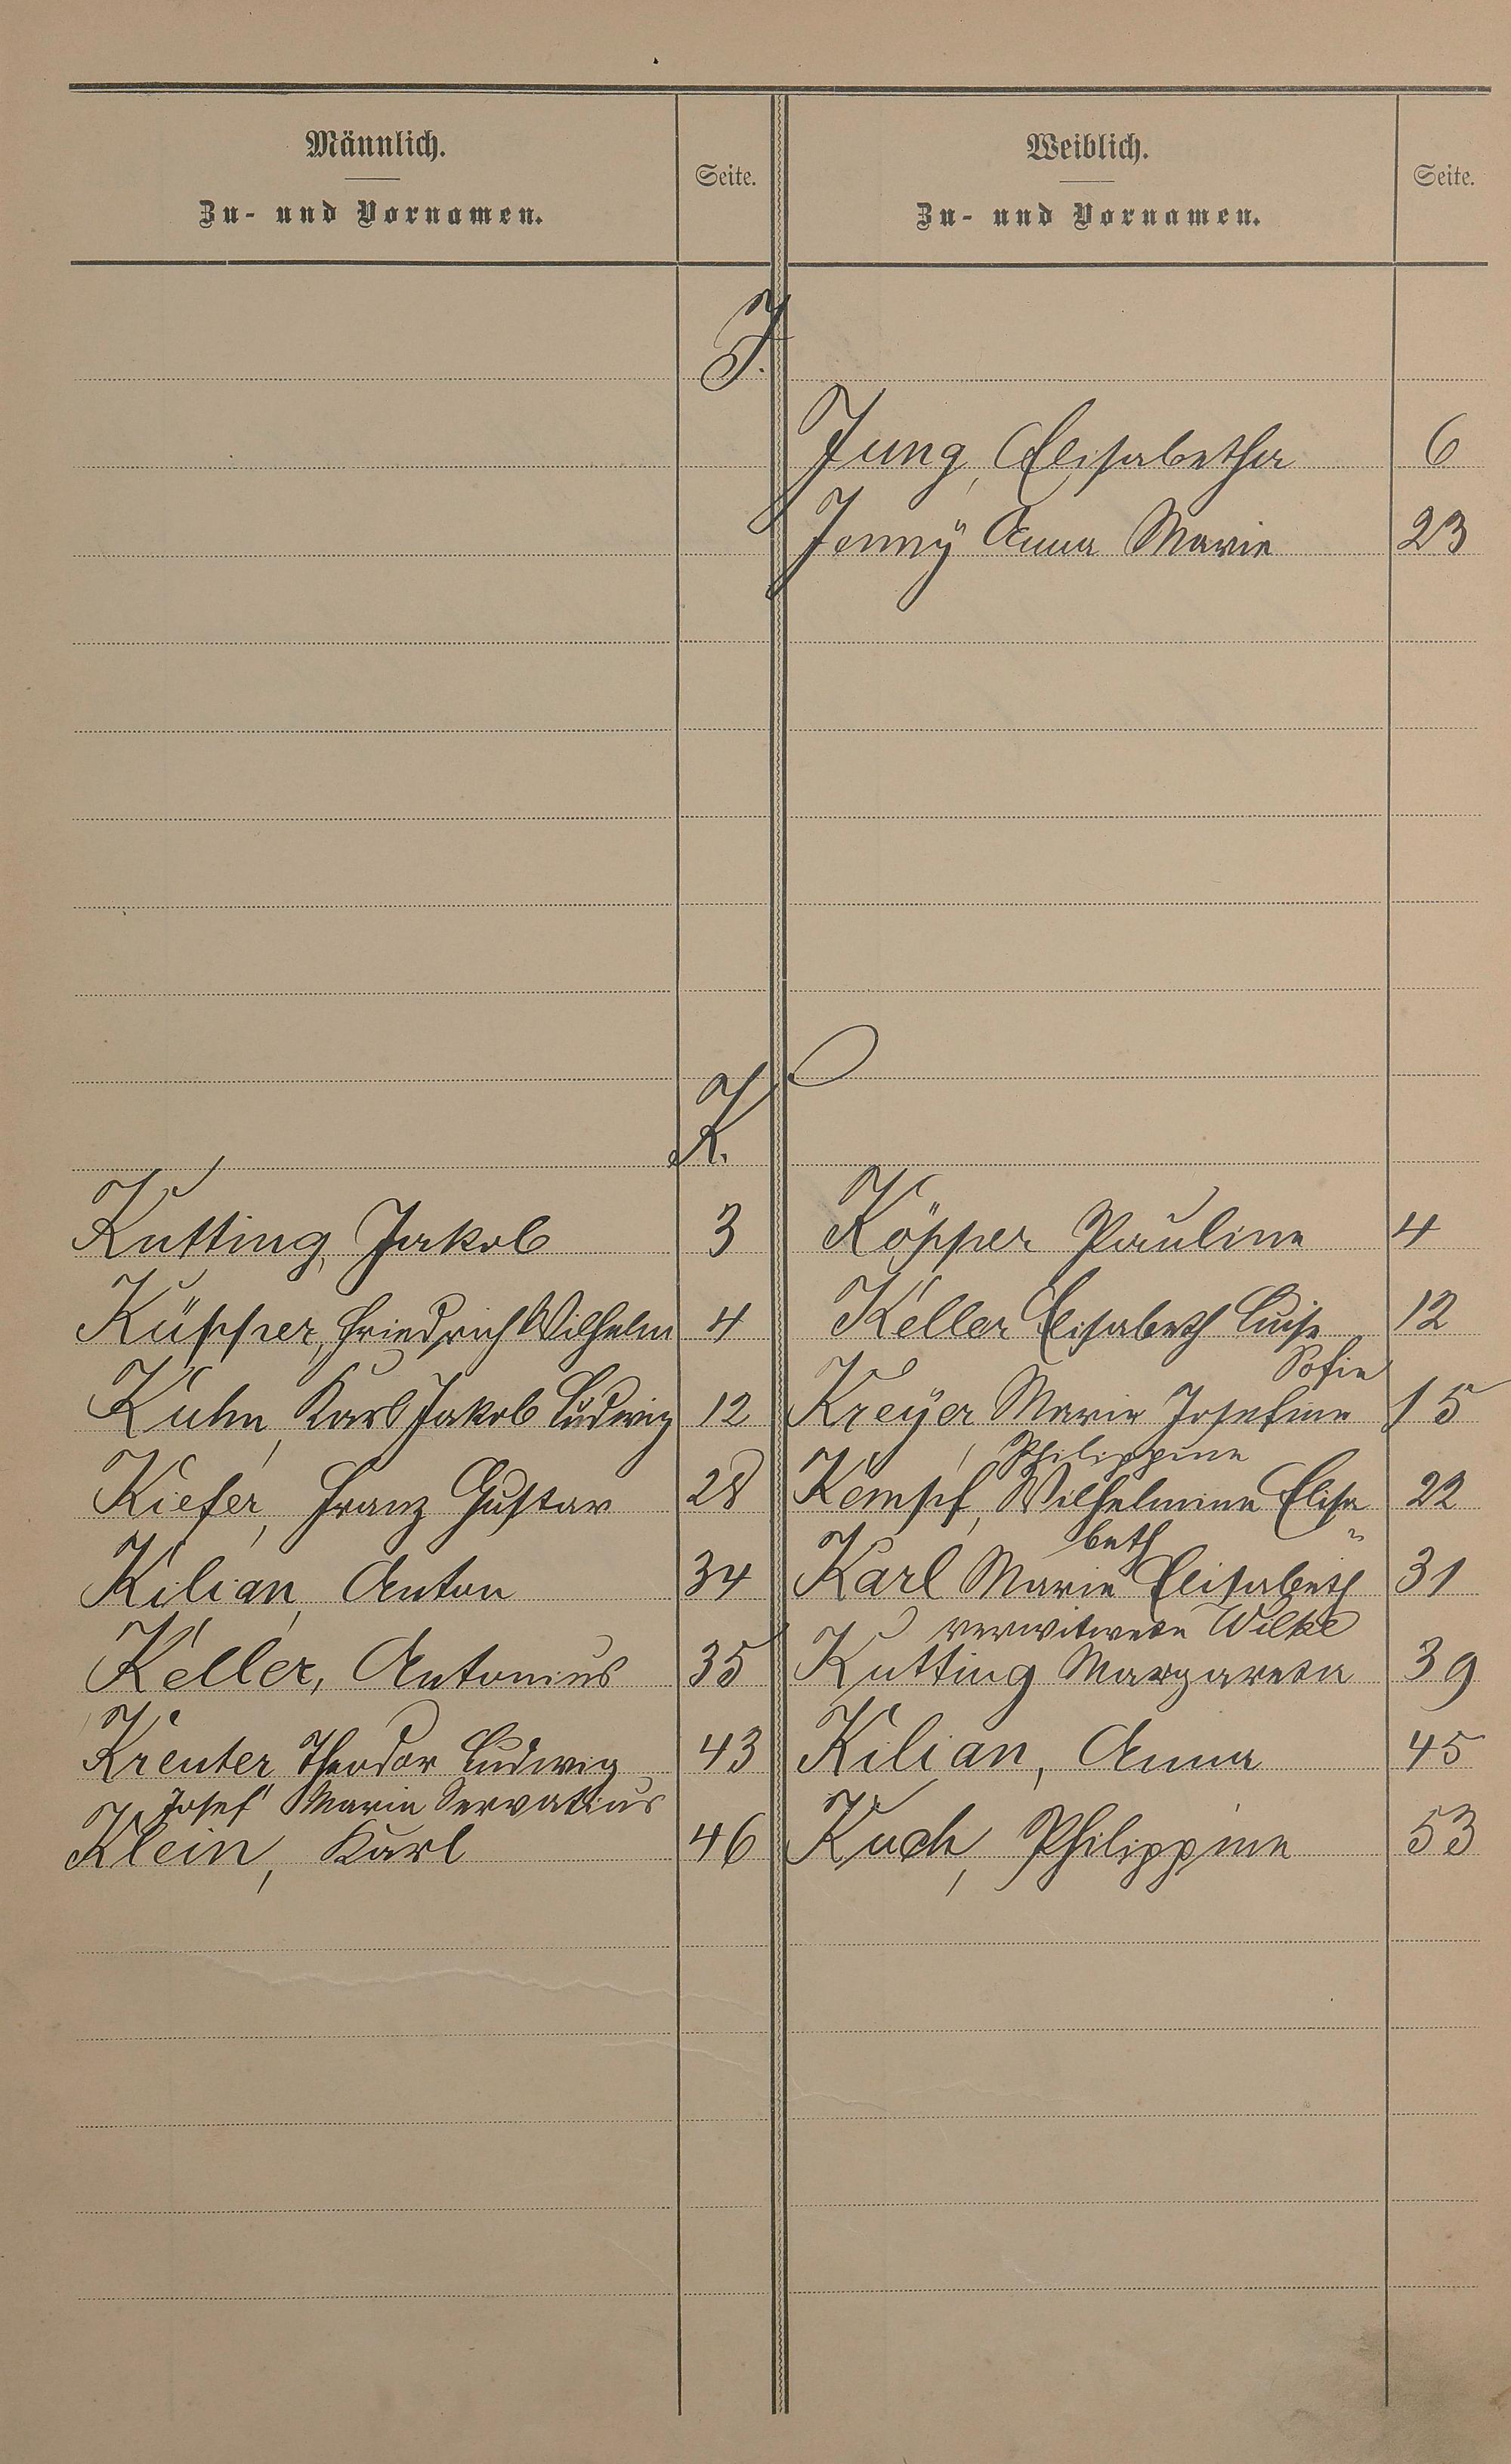 Männlich.
Zu- und Vornamen.
Seite.
Weiblich.
Zu- und Vornamen.
Seite.
J.
Jung, Elisabetha 6
Jenny Anna Marie 23
K.
Kutting, Jakob 3 Köpper Pauline 4
Küpper, Friedrich Wilhelm 4 Keller Elisabeth Luise 12
Sofie
Kuhn, Karl Jakob Ludwig 12 Kreÿer Marie Josefine 15
Philippine
Kiefer, Franz Gustav 28 Kempf, Wilhelmine Elisa 22
beth
Kilian, Anton 34 Karl Marie Elisabeth 31
verwitwete Wilke
Keller, Antonius 35 Kutting Margareta 39
Kreuter Theodor Ludwig 43 Kilian, Anna 45
Josef Maria Servatius
Klein, Karl 46 Kuch, Philippine 53